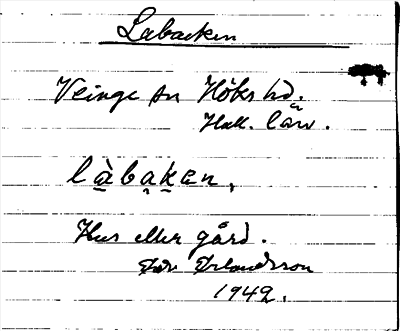 Labacken
Veinge sn Höks hd.
Hall. län.
làbaken.
Hus eller gård.
Erlandsson
1942.